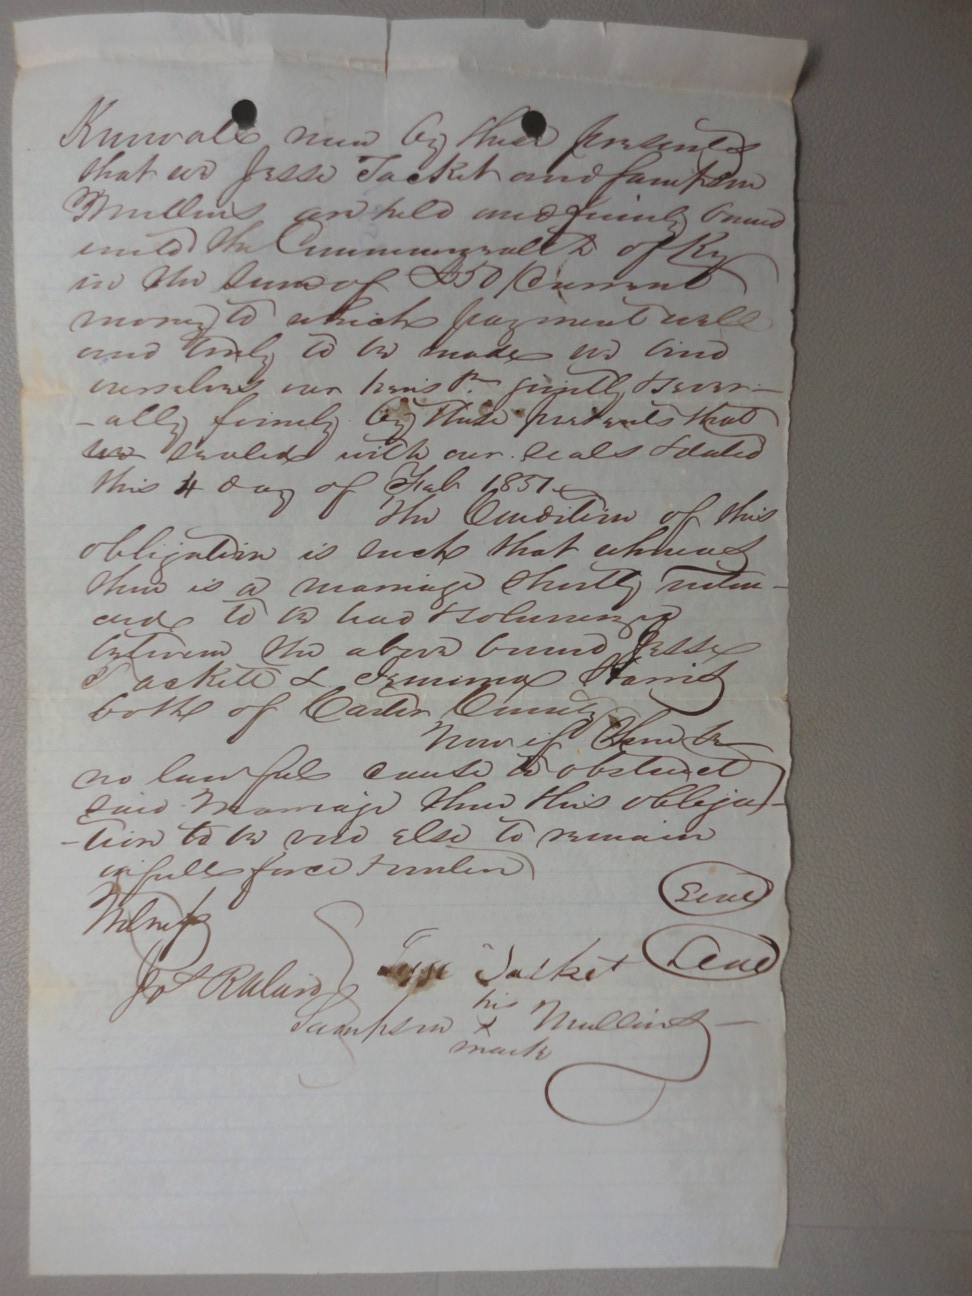 Know all men by these presents
that we Jesse Tacket and Sampson
Mullins are held and firmly bound
unto the Commonwealth of Ky
in the sum of £50 Current
money to which payment well
and truly to be made we bind
ourselves our heirs &c jointly & sever-
-ally firmly by these presents that
we sealed with our seals & dated
this 4 day of Feb 1851
The Condition of this
obligation is such that whereas
there is a marriage shortly inten-
ded to be had & solemnized
between the above bound Jesse
Tackett & Jemima Harris
both of Carter County
Now if there be
no lawful cause to obstruct
said Marriage then this obliga-
-tion to be void else to remain
in full force & virtue
Seal
Witness
Jesse Tacket Seal
Sampson his x mark Mullins